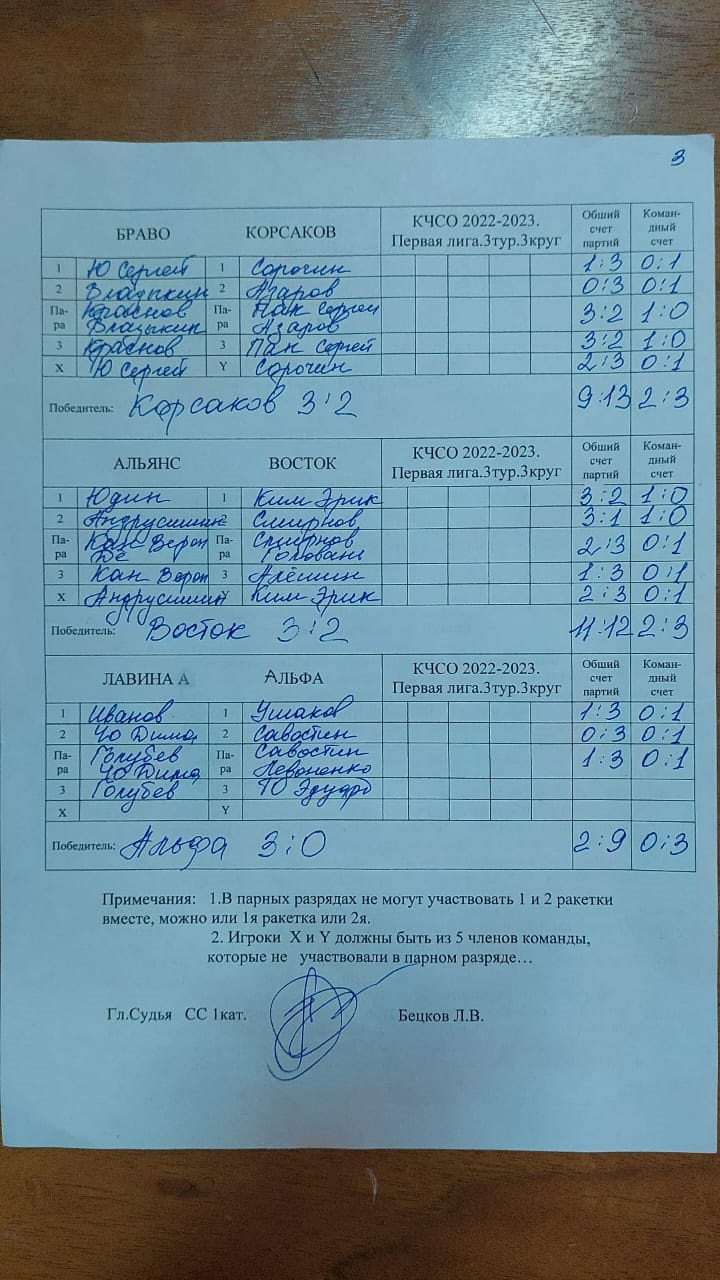 3
БРАВО КОРСАКОВ КЧСО 2022-2023. Первая лига.3тур.3круг Общий счет партий Коман-дный счет
1 Ю Сергей 1 Сорочин 1:3 0:1
2 Владыкин 2 Азаров 0:3 0:1
Па-ра Краснов Па-ра Пак Сергей 3:2 1:0
Владыкин Азаров
3 Краснов 3 Пак Сергей 3:2 1:0
X Ю Сергей Y Сорочин 2:3 0:1
Победитель: Корсаков 3:2 9:13 2:3
АЛЬЯНС ВОСТОК КЧСО 2022-2023. Первая лига.3тур.3круг Общий счет партий Коман-дный счет
1 Юдин 1 Ким Эрик 3:2 1:0
2 Андрусишин 2 Смирнов 3:1 1:0
Па-ра Кан Верон Па-ра Смирнов 2:3 0:1
Де
3 Кан Верон 3 Алёшин 1:3 0:1
X Андрусишин Y Ким Эрик 2:3 0:1
Победитель: Восток 3:2 11:12 2:3
ЛАВИНА А АЛЬФА КЧСО 2022-2023. Первая лига.3тур.3круг Общий счет партий Коман-дный счет
1 Иванов 1 Ушаков 1:3 0:1
2 Чо Дима 2 Савостин 0:3 0:1
Па-ра Голубев Па-ра Савостин 1:3 0:1
Чо Дима Левоненко
3 Голубев 3 Ю Эдуард
X Y
Победитель: Альфа 3:0 2:9 0:3
Примечания: 1.В парных разрядах не могут участвовать 1 и 2 ракетки
вместе, можно или 1я ракетка или 2я.
2. Игроки X и Y должны быть из 5 членов команды,
которые не участвовали в парном разряде…
Гл.Судья СС 1кат. Бецков Л.В.